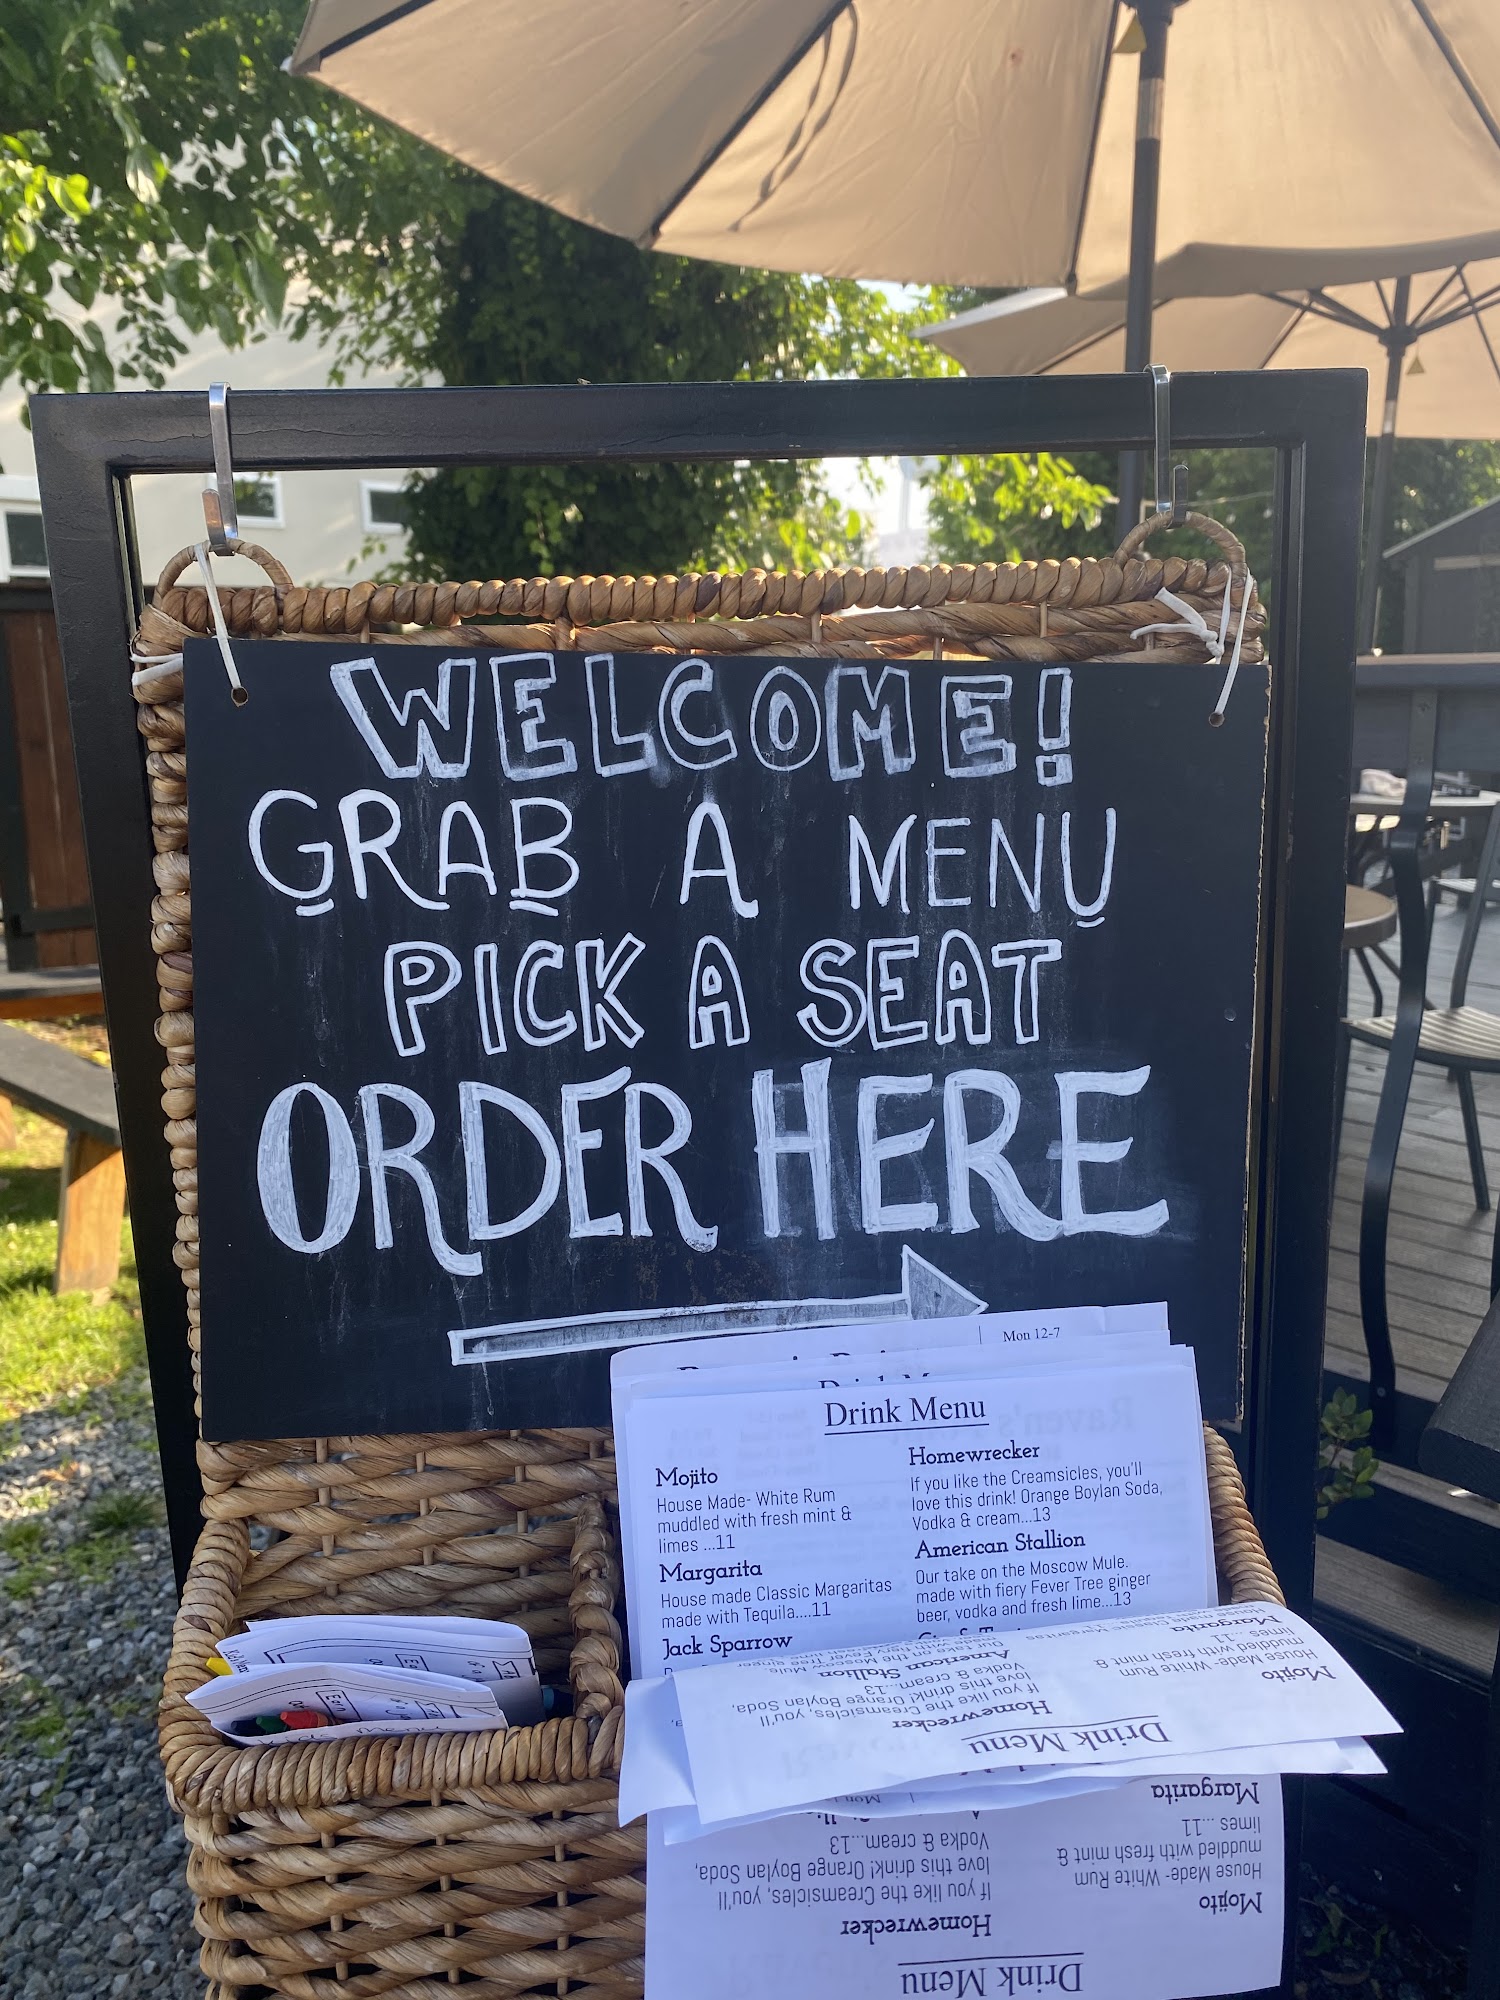 WELCOME!
GRAB A MENU
PICK A SEAT
ORDER HERE
Mon 12-7
Drink Menu
Mojito
House Made- White Rum
muddled with fresh mint &
limes ...11
Margarita
House made Classic Margaritas
made with Tequila....11
Jack Sparrow
Homewrecker
If you like the Creamsicles, you'll
love this drink! Orange Boylan Soda,
Vodka & cream...13
American Stallion
Our take on the Moscow Mule.
made with fiery Fever Tree ginger
beer, vodka and fresh lime...13
Drink Menu
Mojito
House Made- White Rum
muddled with fresh mint &
limes ...11
Margarita
Homewrecker
If you like the Creamsicles, you'll
love this drink! Orange Boylan Soda,
Vodka & cream...13
American Stallion
Drink Menu
Mojito
House Made- White Rum
muddled with fresh mint &
limes ...11
Margarita
Homewrecker
If you like the Creamsicles, you'll
love this drink! Orange Boylan Soda,
Vodka & cream...13